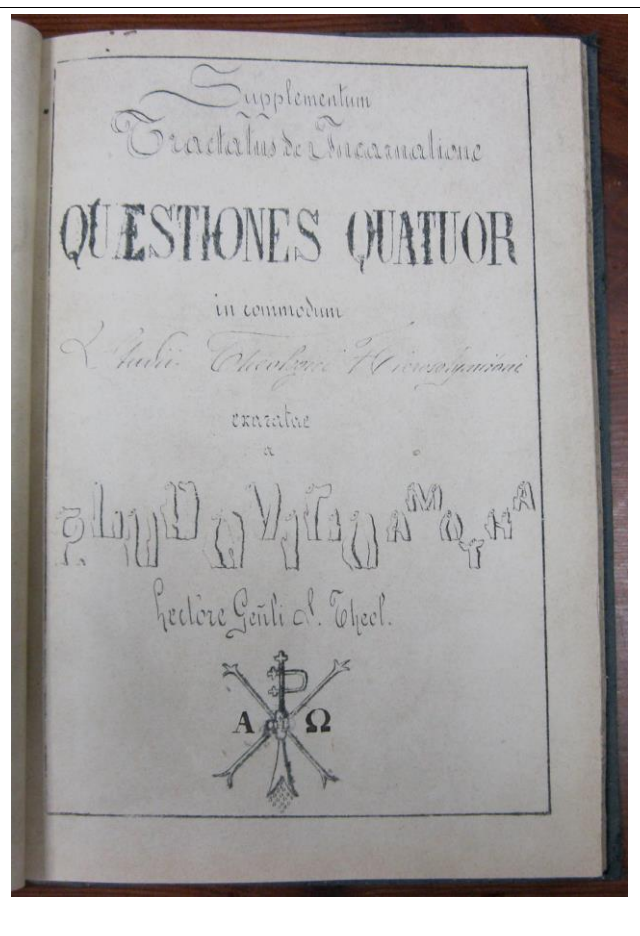 Supplementum
Tractatus de Incarnatione
QUÆSTIONES QUATUOR
in commodum
Studii Theologici Hierosolymitani
exaratae
a
P. LUDOVICO A
Lectore Geñli S. Theol.
Α Ω